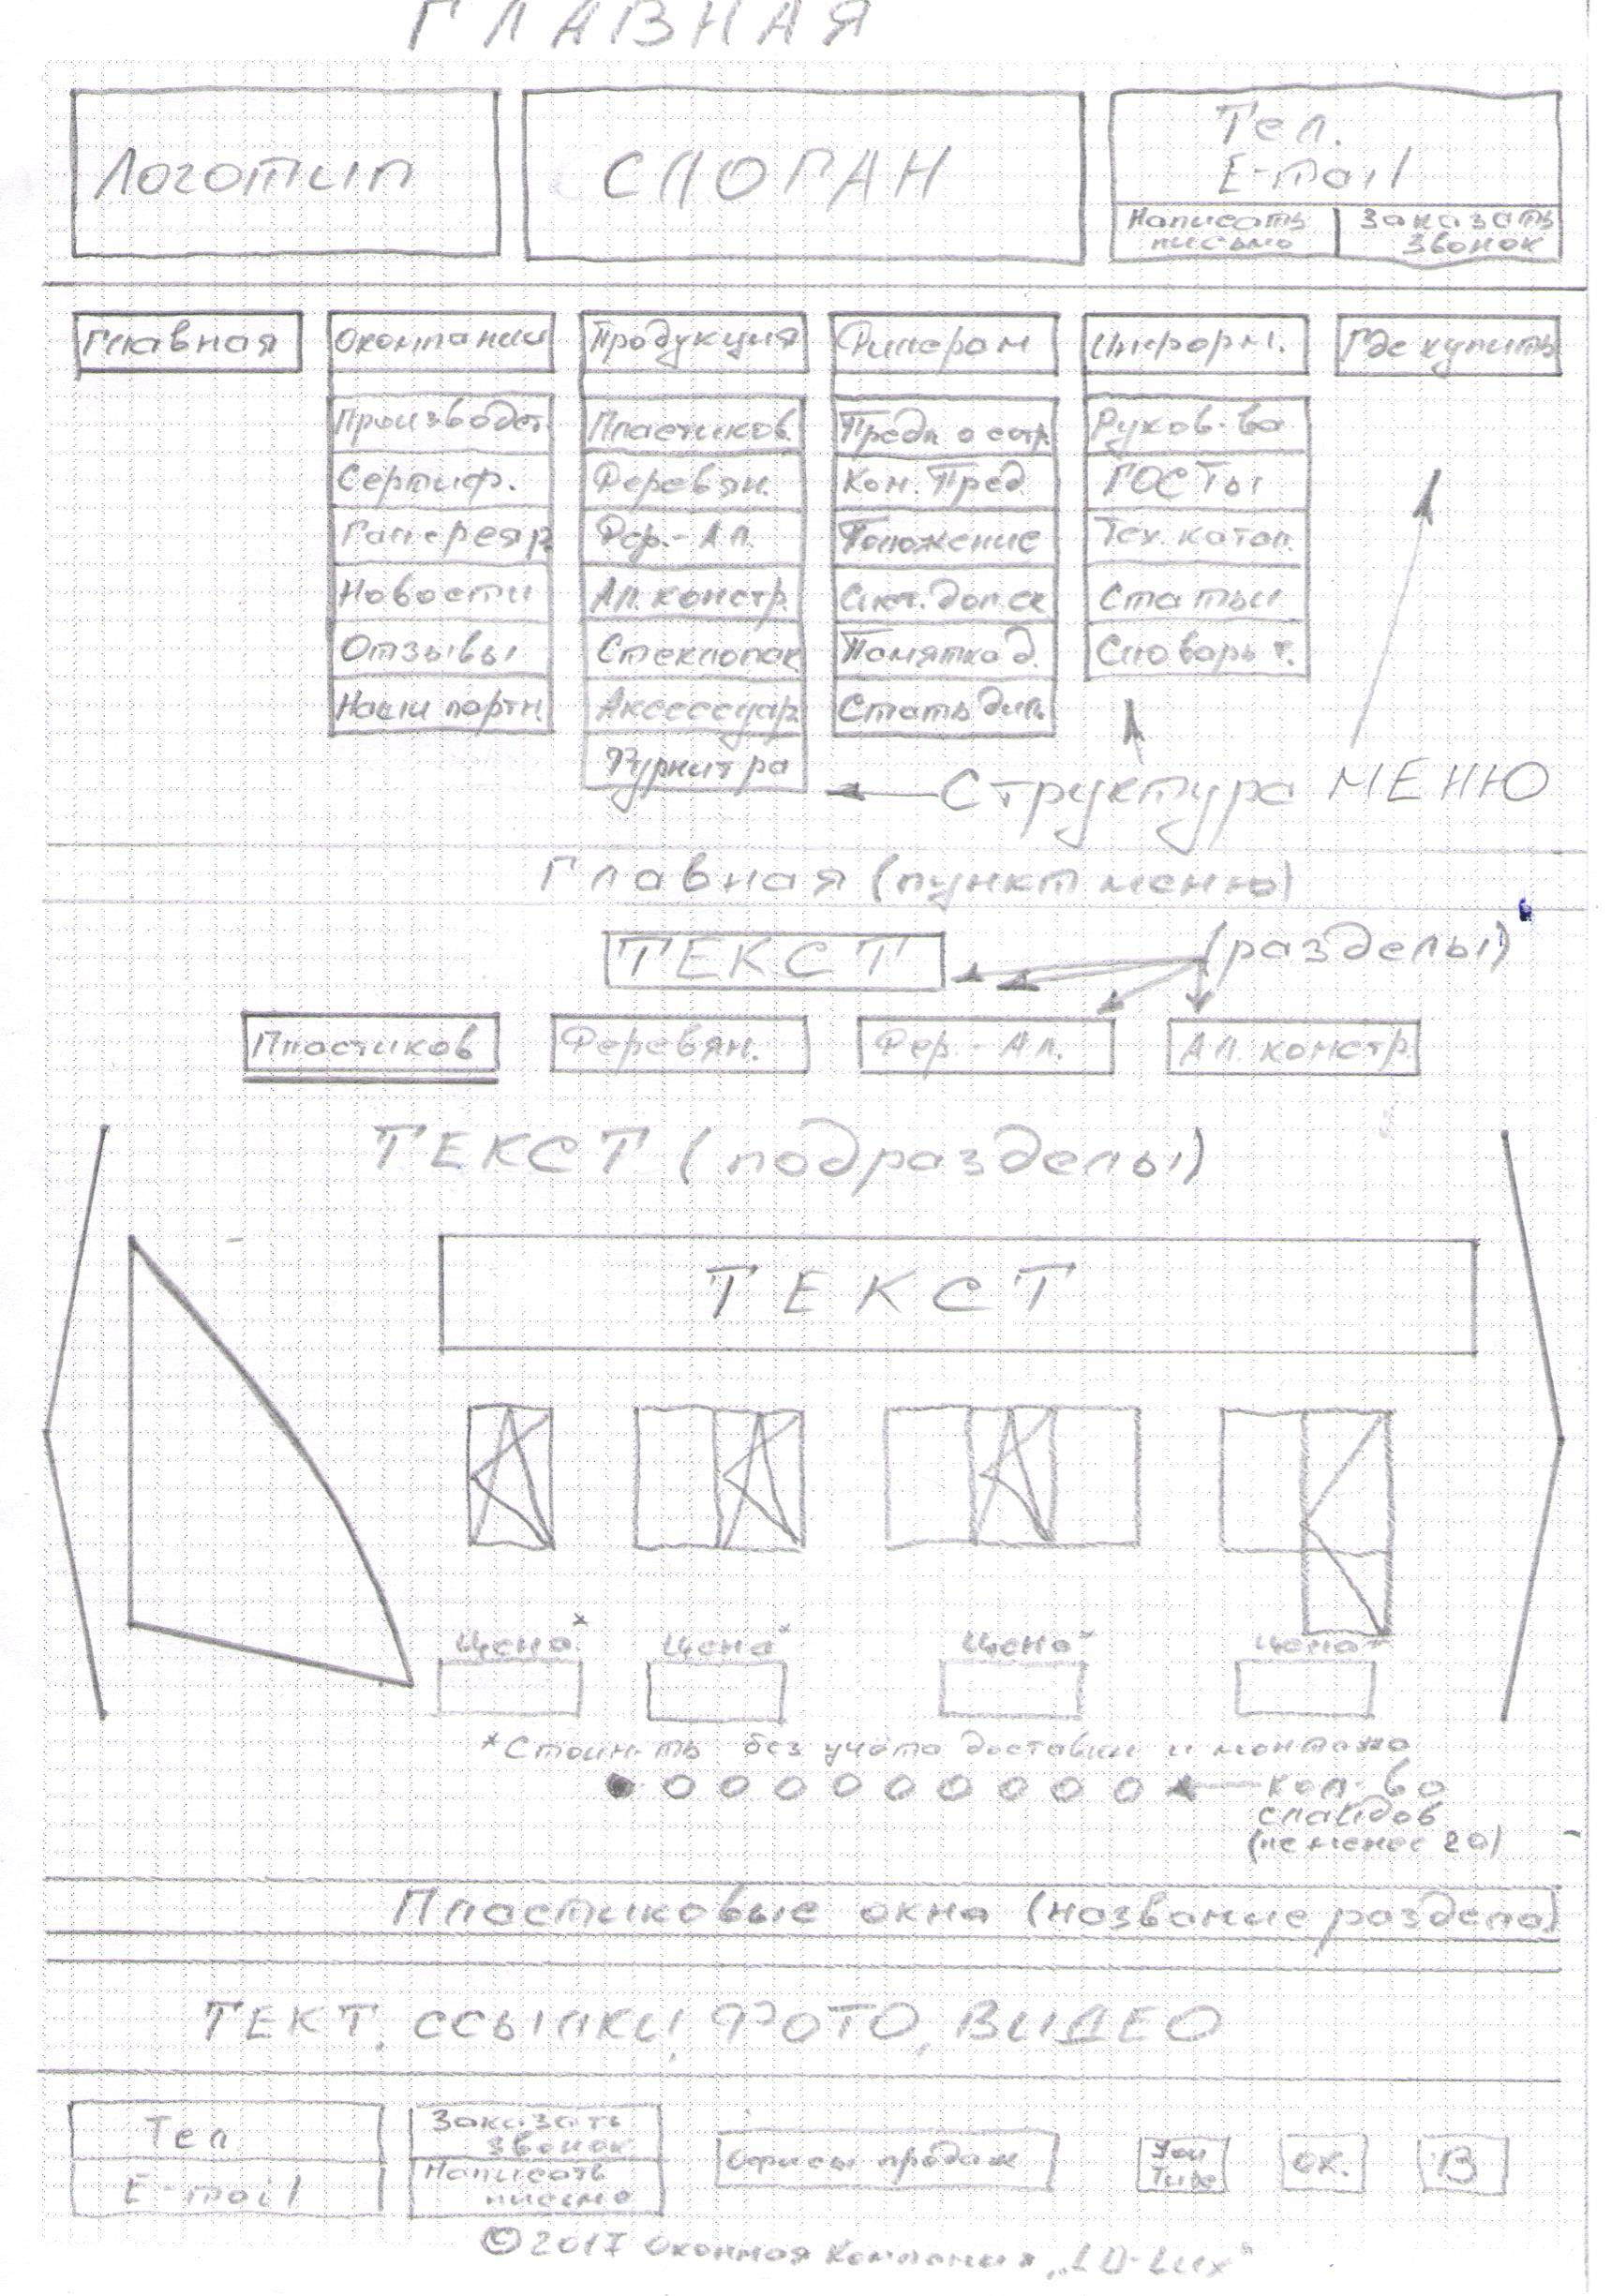 ГЛАВНАЯ
Логотип
СЛОГАН
Тел.
E-mail
Написать письмо
Заказать звонок
Главная
О компании
Продукция
Дилерам
Информ.
Где купить
Производст.
Сертиф.
Галерея р.
Новости
Отзывы
Наши партн.
Пластиков.
Деревян.
Дер.-Ал.
Ал. констр.
Стеклопак.
Аксессуар.
Фурнитра
Предл о сотр.
Ком. Пред.
Положение
Сист. доп. ск
Памятка д.
Стать дил.
Руков-ва
ГОСТы
Тех. катал.
Статьи
Словарь т.
Структура МЕНЮ
Главная (пункт меню)
ТЕКСТ
(разделы)
Пластиков
Деревян.
Дер.-Ал.
Ал. констр.
ТЕКСТ (подразделы)
ТЕКСТ
Цена*
Цена*
Цена*
Цена*
*Стоим-ть без учёта доставки и монтажа
кол-во
слайдов
(не менее 20)
Пластиковые окна (название раздела)
ТЕКТ, ССЫЛКИ, ФОТО, ВИДЕО
Тел
E-mail
Заказать
звонок
Написать
письмо
Офисы продаж
You
Tube
ок.
В
© 2017 Оконная Компания „LD-Lux"